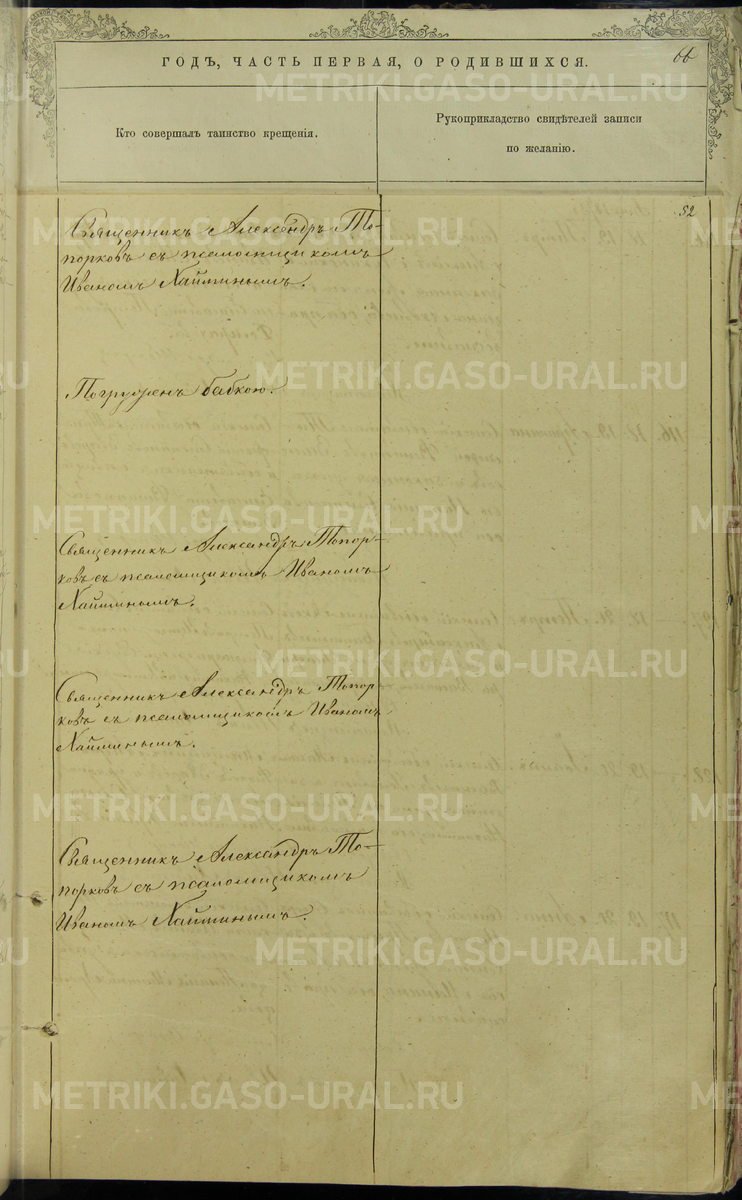 66
ГОДЪ, ЧАСТЬ ПЕРВАЯ, О РОДИВШИХСЯ.
Кто совершалъ таинство крещенія.
Рукоприкладство свидѣтелей записи
по желанію.
52
Священникъ Александръ То-
порковъ съ псаломщикомъ
Иваномъ Хайминымъ.
Погруженъ бабкою.
Священникъ Александръ Топор-
ковъ съ псаломщикомъ Иваномъ
Хайминымъ.
Священникъ Александръ Топор-
ковъ съ псаломщикомъ Иваномъ
Хайминымъ.
Священникъ Александръ То-
порковъ съ псаломщикомъ
Иваномъ Хайминымъ.
METRIKI.GASO-URAL.RU